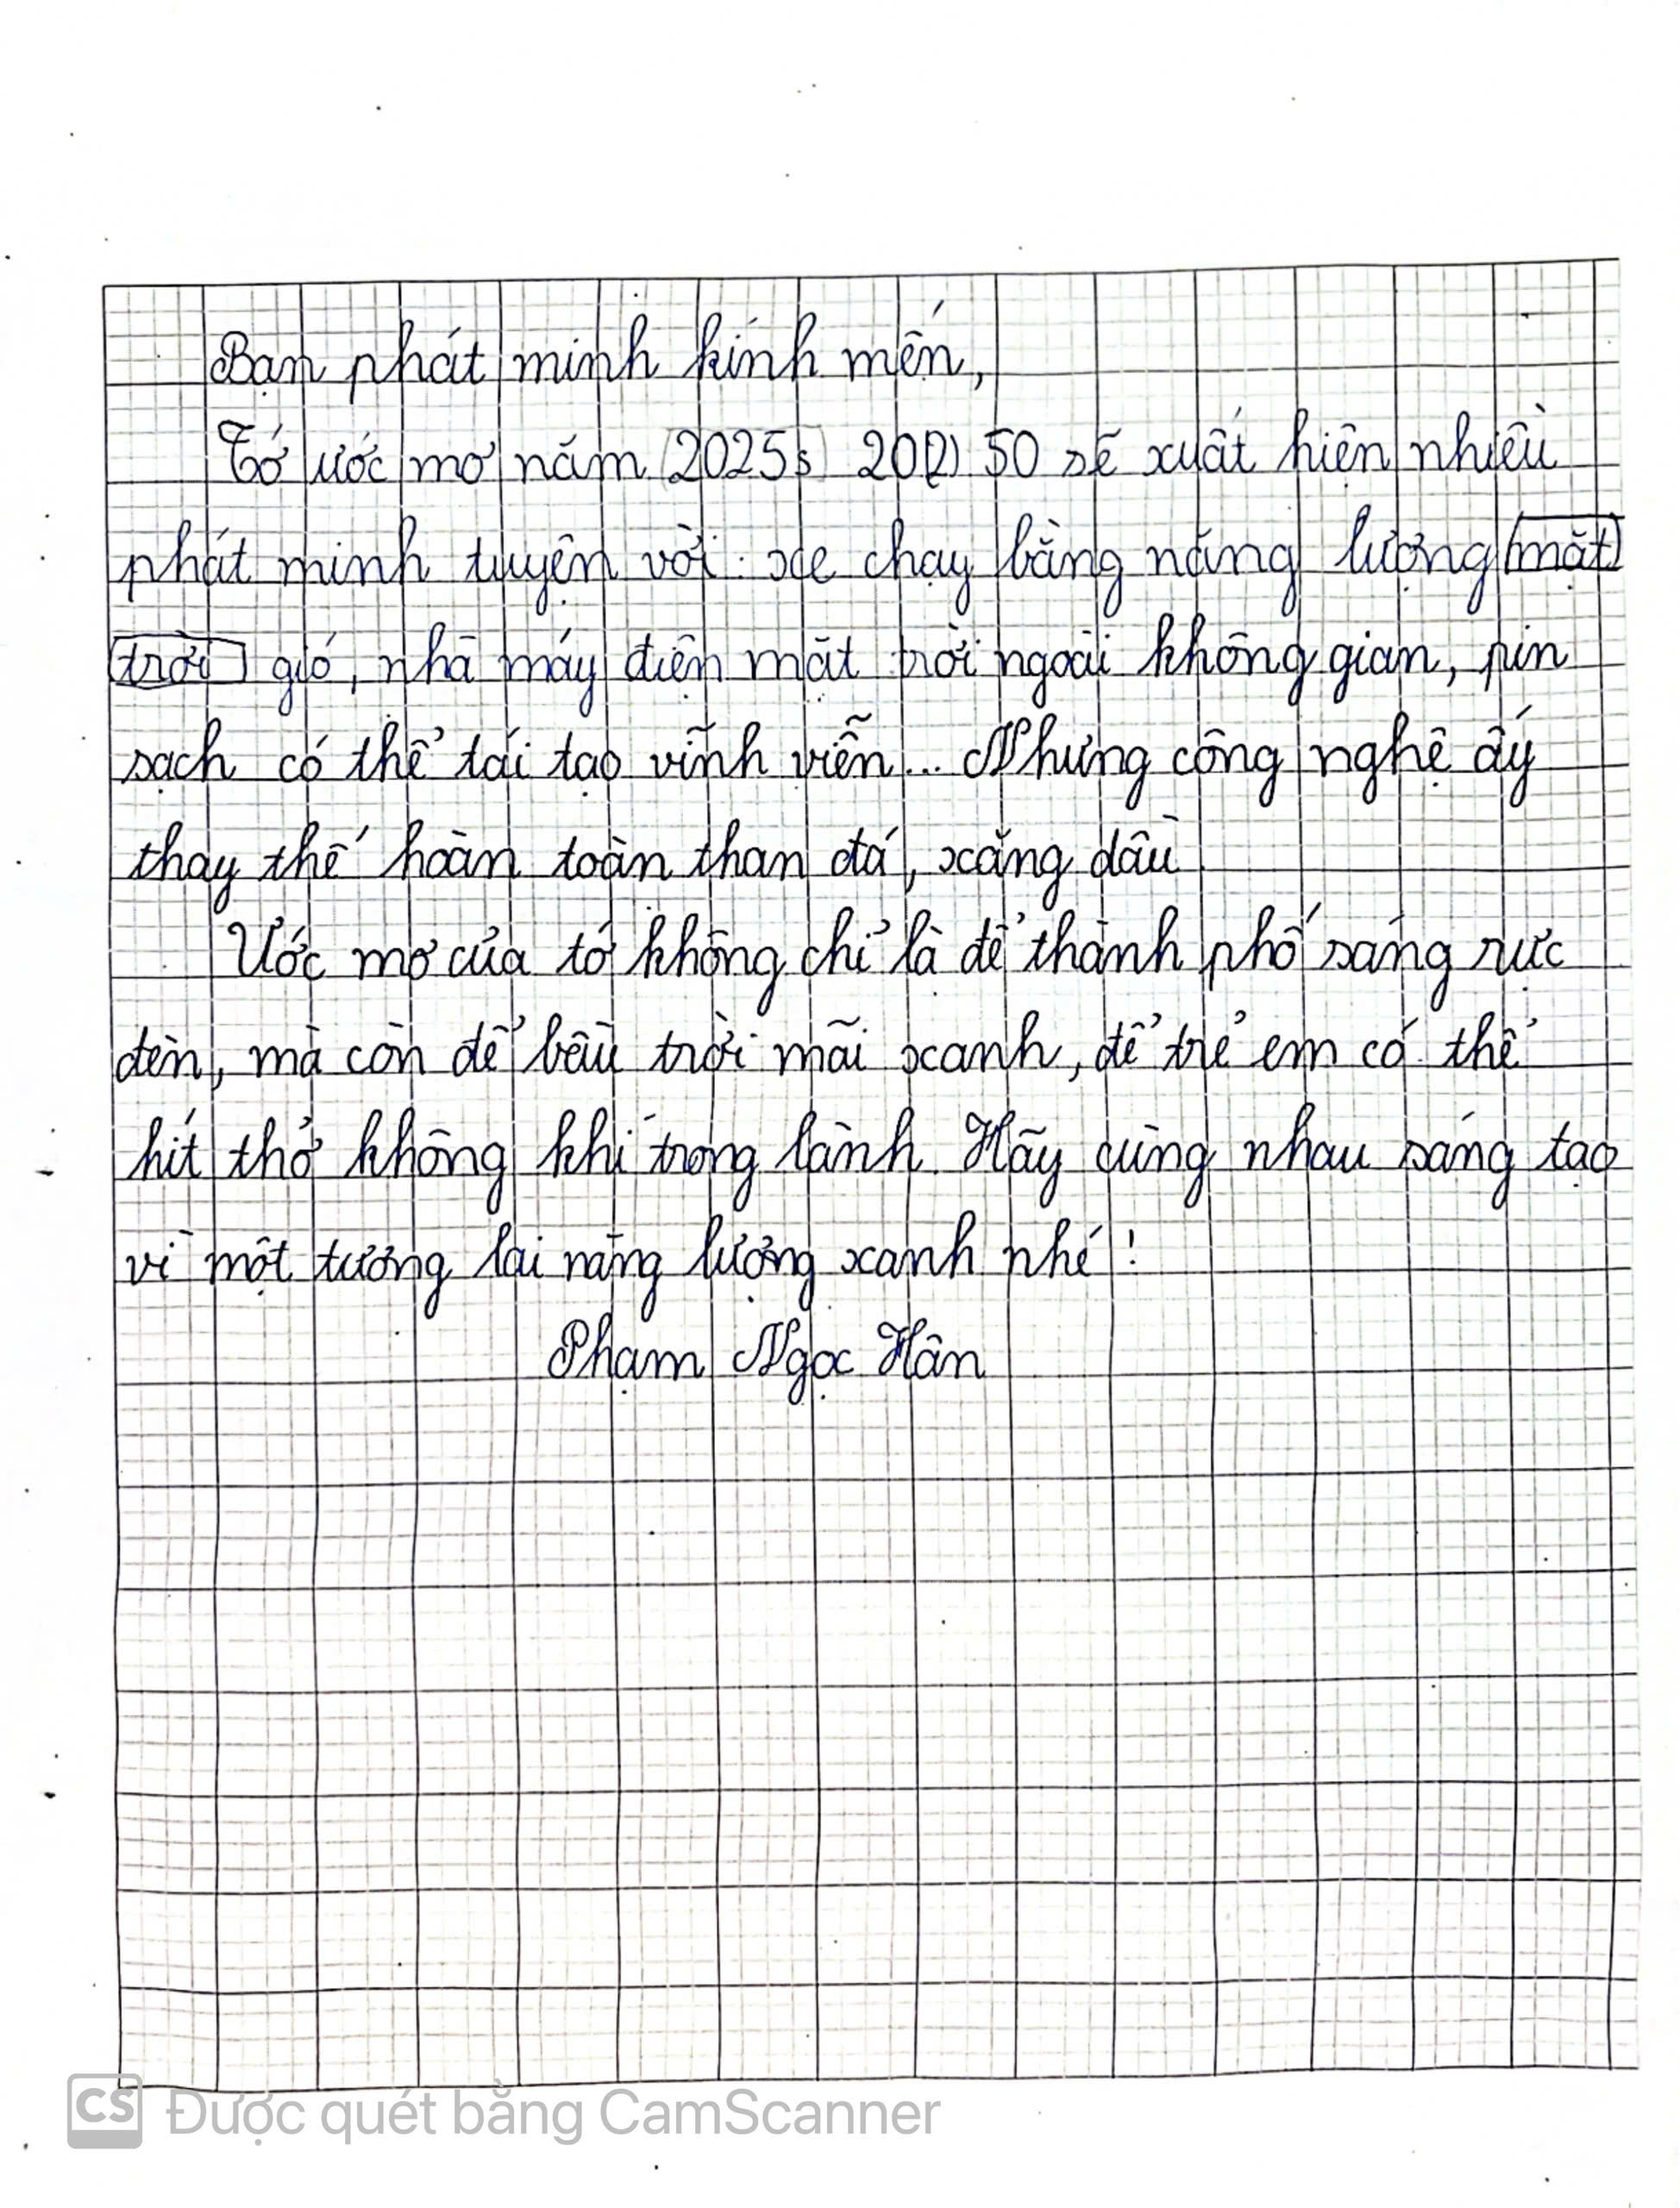 Bạn phát minh kính mến,
Tớ ước mơ năm (2025s) 20(2) 50 sẽ xuất hiện nhiều
phát minh tuyện vời: xe chạy bằng năng lượng (mặt)
(trời) gió, nhà máy điện mặt trời ngoài không gian, pin
sạch có thể tái tạo vĩnh viễn... Những công nghệ ấy
thay thế hoàn toàn than đá, xăng dầu.
Ước mơ của tớ không chỉ là để thành phố sáng rực
đèn, mà còn để bầu trời mãi xanh, để trẻ em có thể
hít thở không khí trong lành. Hãy cùng nhau sáng tạo
vì một tương lai năng lượng xanh nhé!
Phạm Ngọc Hân
CS Được quét bằng CamScanner